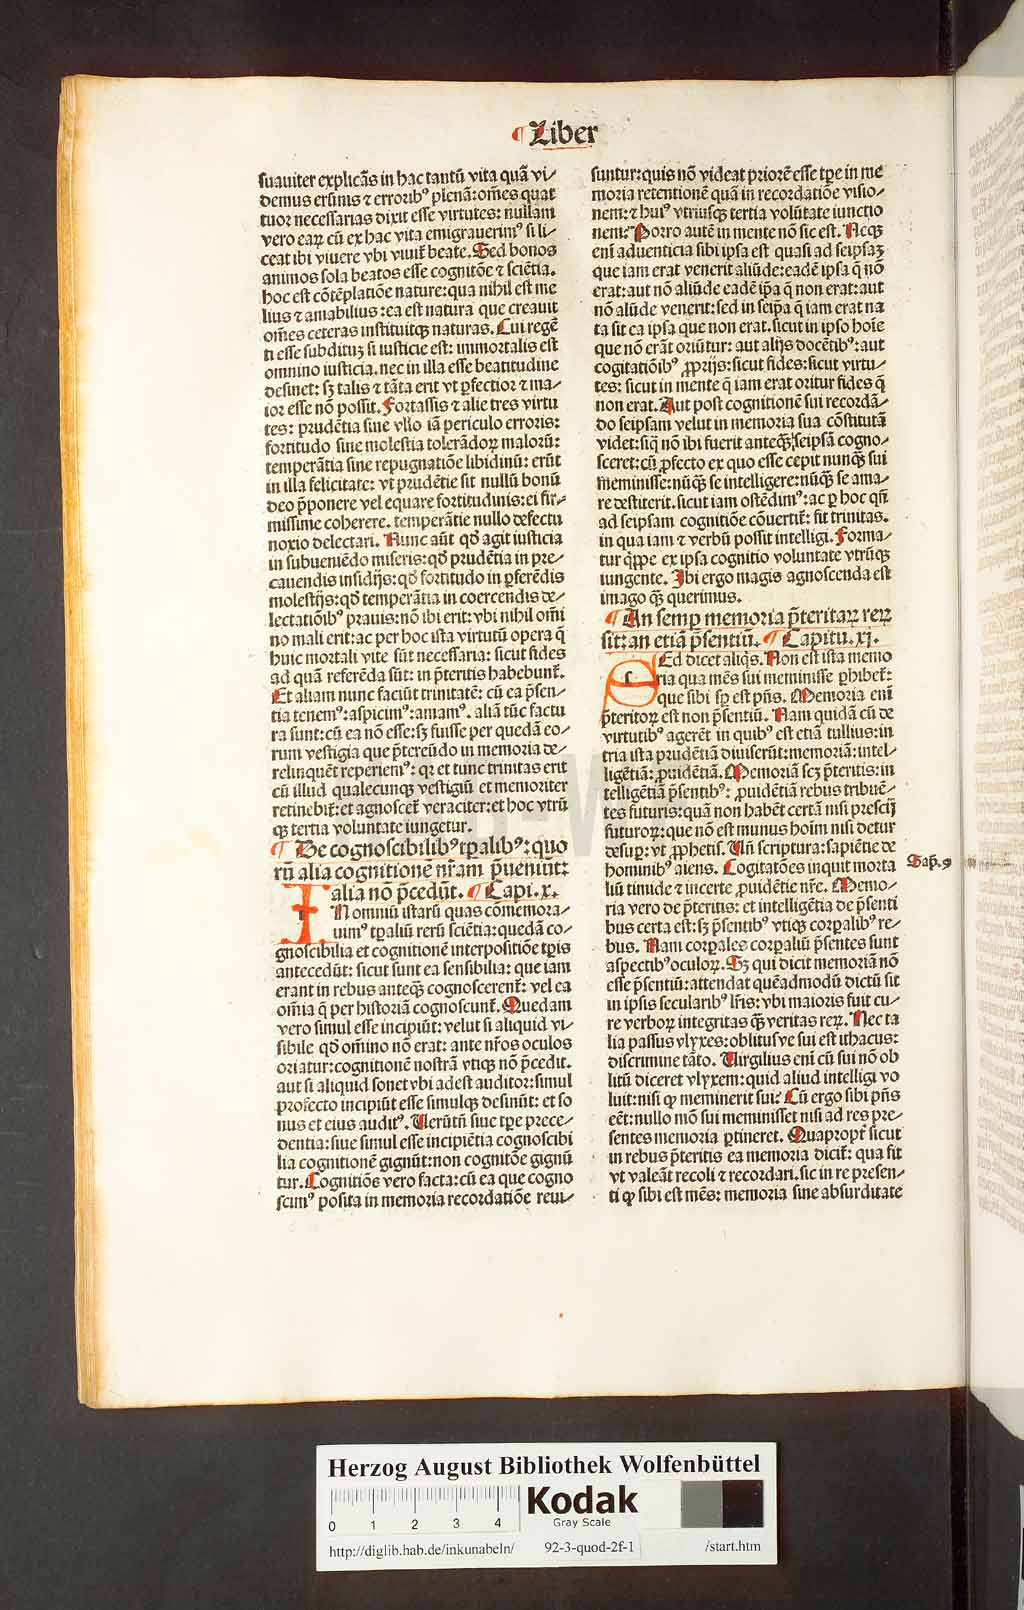 ¶ Liber
suauiter explicãs in hac tantũ vita quã vi⸗
demus erũnis ⁊ erroribꝰ plenã: om̃es quat
tuor necessarias dixit esse virtutes: nullam
vero eaꝝ cũ ex hac vita emigrauerimꝰ si li⸗
ceat ibi viuere vbi viuit̃ beate. Sed bonos
animos sola beatos esse cognitõe ⁊ sciẽtia.
hoc est cõtẽplatiõe nature: qua nihil est me
lius ⁊ amabilius: ea est natura que creauit
om̃es ceteras instituitqꝫ naturas. Cui regẽ
ti esse subdituꝫ si iusticie est: immortalis est
omnino iusticia. nec in illa esse beatitudine
desinet: sꝫ talis ⁊ tãta erit vt ꝑfectior ⁊ ma⸗
ior esse nõ possit. Fortassis ⁊ alie tres virtu
tes: prudẽtia sine vllo iã periculo erroris:
fortitudo sine molestia tolerãdoꝝ maloꝝ:
temperãtia sine repugnatiõe libidinũ: erũt
in illa felicitate: vt prudẽtie sit nullũ bonũ
deo p̃ponere vel equare fortitudinis: ei fir⸗
missime coherere. temperãtie nullo defectu
noxio delectari. Nunc aũt qđ agit iusticia
in subueniẽdo miseris: qđ prudẽtia in pre⸗
cauendis insidijs: qđ fortitudo in ꝑferẽdis
molestijs: qđ temperãtia in coercendis de⸗
lectatiõibꝰ prauis: nõ ibi erit: vbi nihil om̃i
no mali erit: ac per hoc ista virtutũ opera q̃
huic mortali vite sũt necessaria: sicut fides
ad quã referẽda sũt: in p̃teritis habebunt̃.
Et aliam nunc faciũt trinitatẽ: cũ ea p̃sen⸗
tia tenemꝰ: aspicimꝰ: amamꝰ. aliã tũc factu
ra sunt: cũ ea nõ esse: sꝫ fuisse per quedã eo⸗
rum vestigia que p̃tereũdo in memoria de⸗
relinquẽt reperiemꝰ: qꝛ et tunc trinitas erit
cũ illud qualecunqꝫ vestigiũ et memoriter
retinebit̃: et agnoscet̃ veraciter: et hoc vtrũ
qꝫ tertia voluntate iungetur.
¶ De cognoscibilibꝰ tꝑalibꝰ: quo
rũ alia cognitionẽ nr̃am p̃ueniũt:
alia nõ p̃cedũt. ¶ Capi. x.
IN omniũ istarũ quas cõmemora⸗
uimꝰ tꝑaliũ rerũ sciẽtia: quedã co⸗
gnoscibilia et cognitionẽ interpositiõe tꝑis
antecedũt: sicut sunt ea sensibilia: que iam
erant in rebus anteqꝫ cognoscerent̃: vel ea
om̃ia q̃ per historiã cognoscunt̃. Quedam
vero simul esse incipiũt: velut si aliquid vi⸗
sibile qđ om̃ino nõ erat: ante nr̃os oculos
oriatur: cognitionẽ nostrã vtiqꝫ nõ p̃cedit.
aut si aliquid sonet vbi adest auditor: simul
profecto incipiũt esse simulqꝫ desinũt: et so
nus et eius auditꝰ. Verũtñ siue tꝑe prece⸗
dentia: siue simul esse incipiẽtia cognoscibi
lia cognitionẽ gignũt: non cognitõe gignũ
tur. Cognitiõe vero facta: cũ ea que cogno
scimꝰ posita in memoria recordatiõe reui⸗
suntur: quis nõ videat priorẽ esse tꝑe in me
moria retentionẽ quã in recordatiõe visio⸗
nem: ⁊ huiꝰ vtriusqꝫ tertia volũtate iunctio
nem: Porro autẽ in mente nõ sic est. Neqꝫ
eni aduenticia sibi ipsa est quasi ad seipsaꝫ
que iam erat venerit aliũde: eadẽ ipsa q̃ nõ
erat: aut nõ aliũde eadẽ ip̃a q̃ non erat: aut
nõ aliũde venerit: sed in seip̃a q̃ iam erat na
ta sit ea ipsa que non erat. sicut in ipso hoĩe
que nõ erãt oriũtur: aut alijs docẽtibꝰ: aut
cogitatiõibꝰ ꝓprijs: sicut fides: sicut virtu⸗
tes: sicut in mente q̃ iam erat oritur fides q̃
non erat. Aut post cognitionẽ sui recordã⸗
do seipsam velut in memoria sua cõstitutã
videt: siqꝫ nõ ibi fuerit anteqꝫ seipsã cogno⸗
sceret: cũ ꝓfecto ex quo esse cepit nunqꝫ sui
meminisse: nũqꝫ se intelligere: nũqꝫ se ama⸗
re destiterit. sicut iam ostẽdimꝰ: ac ꝑ hoc qñ
ad seipsam cognitiõe cõuertit̃: fit trinitas.
in qua iam ⁊ verbũ possit intelligi. Forma⸗
tur q̃ppe ex ipsa cognitio voluntate vtrũqꝫ
iungente. Ibi ergo magis agnoscenda est
imago qꝫ querimus.
¶ An semꝑ memoria p̃teritaꝝ reꝝ
sit: an etiã p̃sentiũ. ¶ Capitu. xi.
SEd dicet aliq̃s. Non est ista memo
ria qua mẽs sui meminisse ꝑhibet̃:
que sibi sꝑ est pñs. Memoria eni
p̃teritoꝝ est non p̃sentiũ. Nam quidã cũ de
virtutibꝰ agerẽt in quibꝰ est etiã tullius: in
tria ista prudẽtiã diuiserũt: memoriã: intel⸗
ligẽtiã: ꝓuidẽtiã. Memoriã scꝫ p̃teritis: in
telligẽtiã p̃sentibꝰ: ꝓuidẽtiã rebus tribuẽ⸗
tes futuris: quã non habẽt certã nisi prescij
futuroꝝ: que nõ est munus hoĩm nisi detur
desuꝑ: vt ꝓphetis. Vñ scriptura: sapiẽtie de
hominibꝰ aiens. Cogitatões inquit morta
liũ timide ⁊ incerte ꝓuidẽtie nr̃e. Memo⸗
ria vero de p̃teritis: et intelligẽtia de p̃senti
bus certa est: sꝫ p̃sentibꝰ vtiqꝫ corꝑalibꝰ re⸗
bus. Nam corꝑales corꝑaliũ p̃sentes sunt
aspectibꝰ oculoꝝ. Sꝫ qui dicit memoriã nõ
esse p̃sentiũ: attendat quẽadmodũ dictũ sit
in ipsis secularibꝰ lr̃is: vbi maioris fuit cu⸗
re verboꝝ integritas qꝫ veritas reꝝ. Nec ta
lia passus vlyxes: oblitusve sui est ithacus:
discrimine tãto. Virgilius eni cũ sui nõ ob
litũ diceret vlyxem: quid aliud intelligi vo
luit: nisi ꝙ meminerit sui: Cũ ergo sibi pñs
eẽt: nullo mõ sui meminisset nisi ad res pre⸗
sentes memoria ꝑtineret. Quapropt̃ sicut
in rebus p̃teritis ea memoria dicit̃: qua fit
vt valeãt recoli ⁊ recordari. sic in re presen⸗
ti ꝙ sibi est mẽs: memoria sine absurditate
Sap. 9
Herzog August Bibliothek Wolfenbüttel
0 1 2 3 4
Kodak
Gray Scale
http://diglib.hab.de/inkunabeln/ 92-3-quod-2f-1 /start.htm